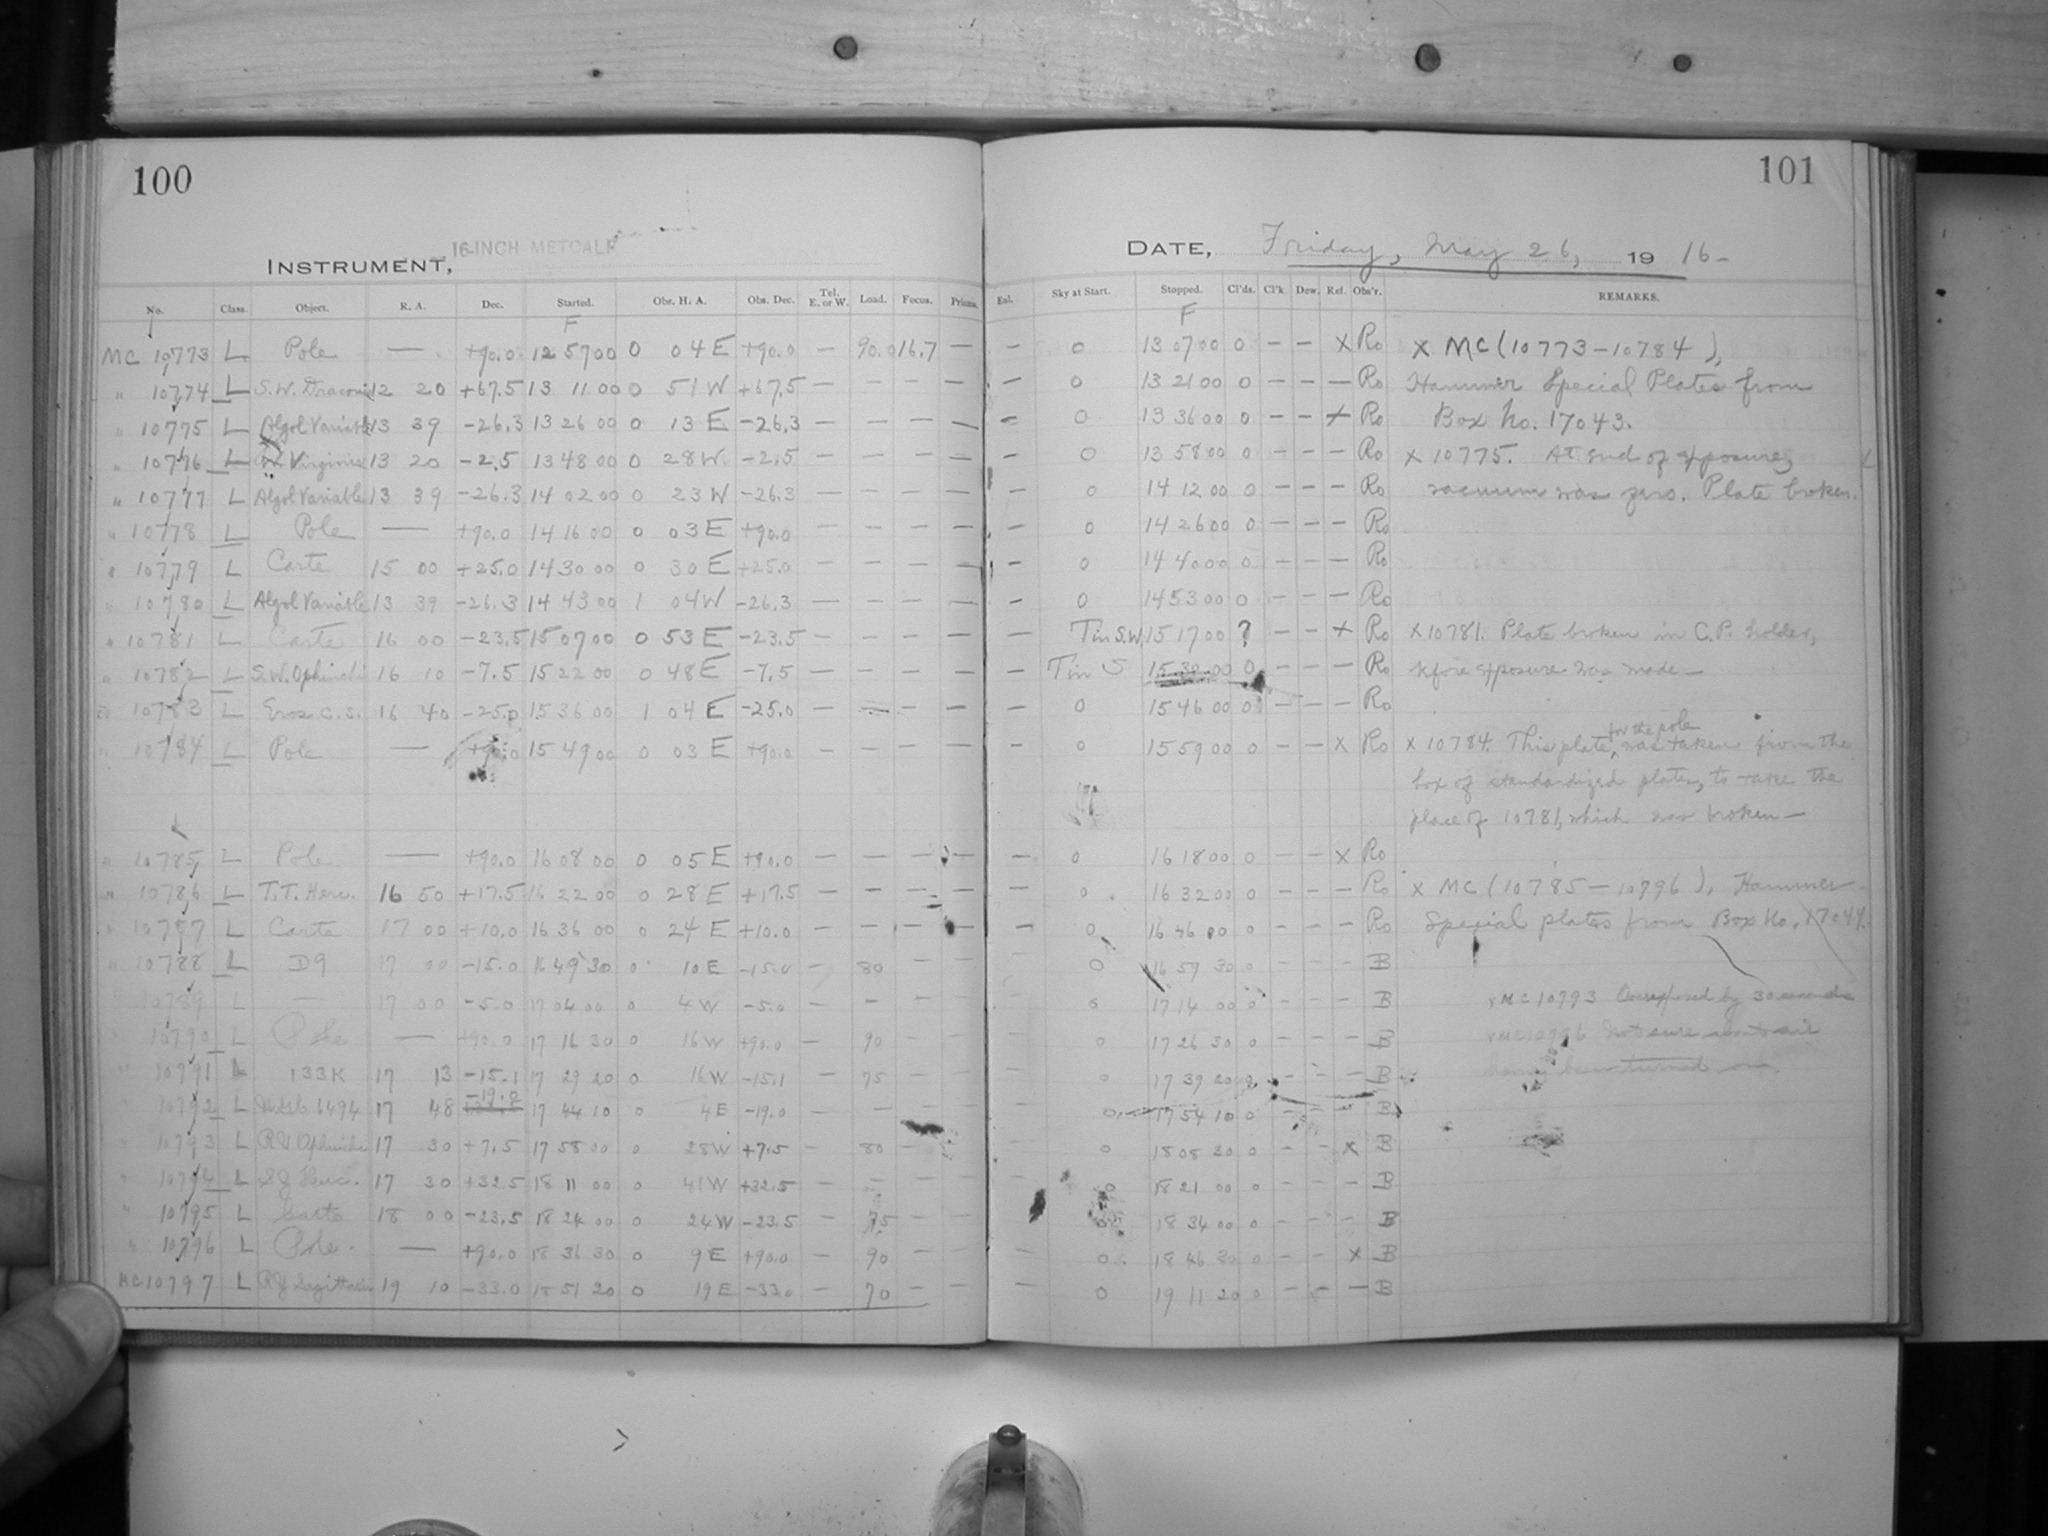 100
101
16-INCH METCALF
INSTRUMENT,
DATE, Friday, May 26, 1916-
No. Class. Object. R. A. Dec. Started. Obs. H. A. Obs. Dec. Tel. E. or W. Load. Focus. Prisms. Eal. Sky at Start. Stopped. Cl'ds. Cl'k. Dew. Ref. Obs'r. REMARKS.
F F
MC 10773 L Pole — +90.0 12 57 00 0 04 E +90.0 — 90.0 16.7 — — 0 13 07 00 0 — — x Ro x MC (10773-10784),
" 10774 L S.W. Draconis 12 20 +67.5 13 11 00 0 51 W +67.5 — — — — — 0 13 21 00 0 — — — Ro Hammer Special Plates from
" 10775 L Algol Variable 13 39 -26.3 13 26 00 0 13 E -26.3 — — — — — 0 13 36 00 0 — — x Ro Box No. 17043.
" 10776 L Virginis 13 20 -2.5 13 48 00 0 28 W -2.5 — — — — — 0 13 58 00 0 — — — Ro x 10775. At end of exposure,
" 10777 L Algol Variable 13 39 -26.3 14 02 00 0 23 W -26.3 — — — — — 0 14 12 00 0 — — — Ro vacuum was zero. Plate broken.
" 10778 L Pole — +90.0 14 16 00 0 03 E +90.0 — — — — — 0 14 26 00 0 — — — Ro
" 10779 L Carte 15 00 +25.0 14 30 00 0 30 E +25.0 — — — — — 0 14 40 00 0 — — — Ro
" 10780 L Algol Variable 13 39 -26.3 14 43 00 1 04 W -26.3 — — — — — 0 14 53 00 0 — — — Ro
" 10781 L Carte 16 00 -23.5 15 07 00 0 53 E -23.5 — — — — — T in S.W. 15 17 00 ? — — x Ro x 10781. Plate broken in C.P. holder,
" 10782 L S.W. Ophiuchi 16 10 -7.5 15 22 00 0 48 E -7.5 — — — — — T in S 15 32 00 0 — — — Ro before exposure was made—
" 10783 L Eros C.S. 16 40 -25.0 15 36 00 1 04 E -25.0 — — — — — 0 15 46 00 0 — — — Ro
" 10784 L Pole — +90.0 15 49 00 0 03 E +90.0 — — — — — 0 15 59 00 0 — — x Ro x 10784. This plate for the pole was taken from the
box of standardized plates, to take the
place of 10781, which was broken—
" 10785 L Pole — +90.0 16 08 00 0 05 E +90.0 — — — — — 0 16 18 00 0 — — x Ro
" 10786 L T.T. Herc. 16 50 +17.5 16 22 00 0 28 E +17.5 — — — — 0 16 32 00 0 — — — Ro x MC (10785-10796), Hammer
" 10787 L Carte 17 00 +10.0 16 36 00 0 24 E +10.0 — — — — — 0 16 46 00 0 — — — Ro Special plates from Box No. 17044.
" 10788 L D9 17 00 -15.0 16 49 30 0 10 E -15.0 — 80 — — — 0 16 59 30 0 — — — B
" 10789 L — 17 00 -5.0 17 04 00 0 4 W -5.0 — — — — — 0 17 14 00 0 — — — B x MC 10793 Overexposed by 30 seconds
" 10790 L Pole — +90.0 17 16 30 0 16 W +90.0 — 90 — — — 0 17 26 30 0 — — — B x MC 10796 Not sure about air
" 10791 L 133K 17 13 -15.1 17 29 20 0 16 W -15.1 75 — — — 0 17 39 20 0 — — — B having been turned on.
" 10792 L 1494 17 48 -19.0 17 44 10 0 4 E -19.0 — — — — — 0 17 54 10 0 — — — B
" 10793 L RV Ophiuchi 17 30 +7.5 17 58 00 0 28 W +7.5 — 80 — — — 0 18 08 30 0 — — x B
" 10794 L SZ Herc. 17 30 +32.5 18 11 00 0 41 W +32.5 — — — — — 0 18 21 00 0 — — — B
" 10795 L Carte 18 00 -23.5 18 24 00 0 24 W -23.5 — 75 — — — 0 18 34 00 0 — — — B
" 10796 L Pole. — +90.0 18 36 30 0 9 E +90.0 — 90 — — — 0 18 46 30 0 — — x B
MC 10797 L Sagittarii 19 10 -33.0 18 51 20 0 19 E -33.0 — 70 — — — 0 19 11 20 0 — — — B